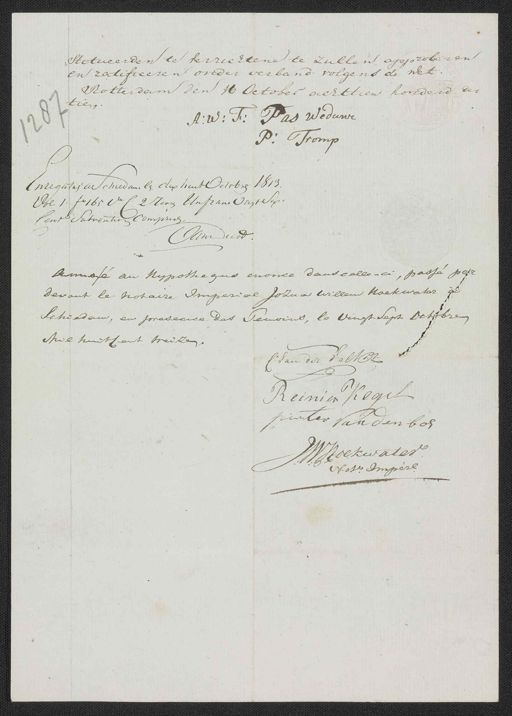 Statueerden te verrigtene te zullen approbeeren
en ratificeeren onder verband volgens de wet.
Rotterdam den 16 October achttien honderd der
tien
1287
A: W: F: Pas Weduwe
P: Tromp
Enregistré a Schiedam le dix huit Octobre 1813
Vol 1 fo 165 Vo C 2 Reçu Un franc Vingt Sept
Cent Subvention Comprise
Annexé au Hypotheque enoncé dans celle-ci, passé par
devant le Notaire Imperial Johna Willem Hoekwater à
Schiedam, en presence des Temoins, le Vingt Sept Octobre
Mil huit Cent treize.
Reinier Kogel
pieter van den bos
JW Hoekwater
Notre Impéré